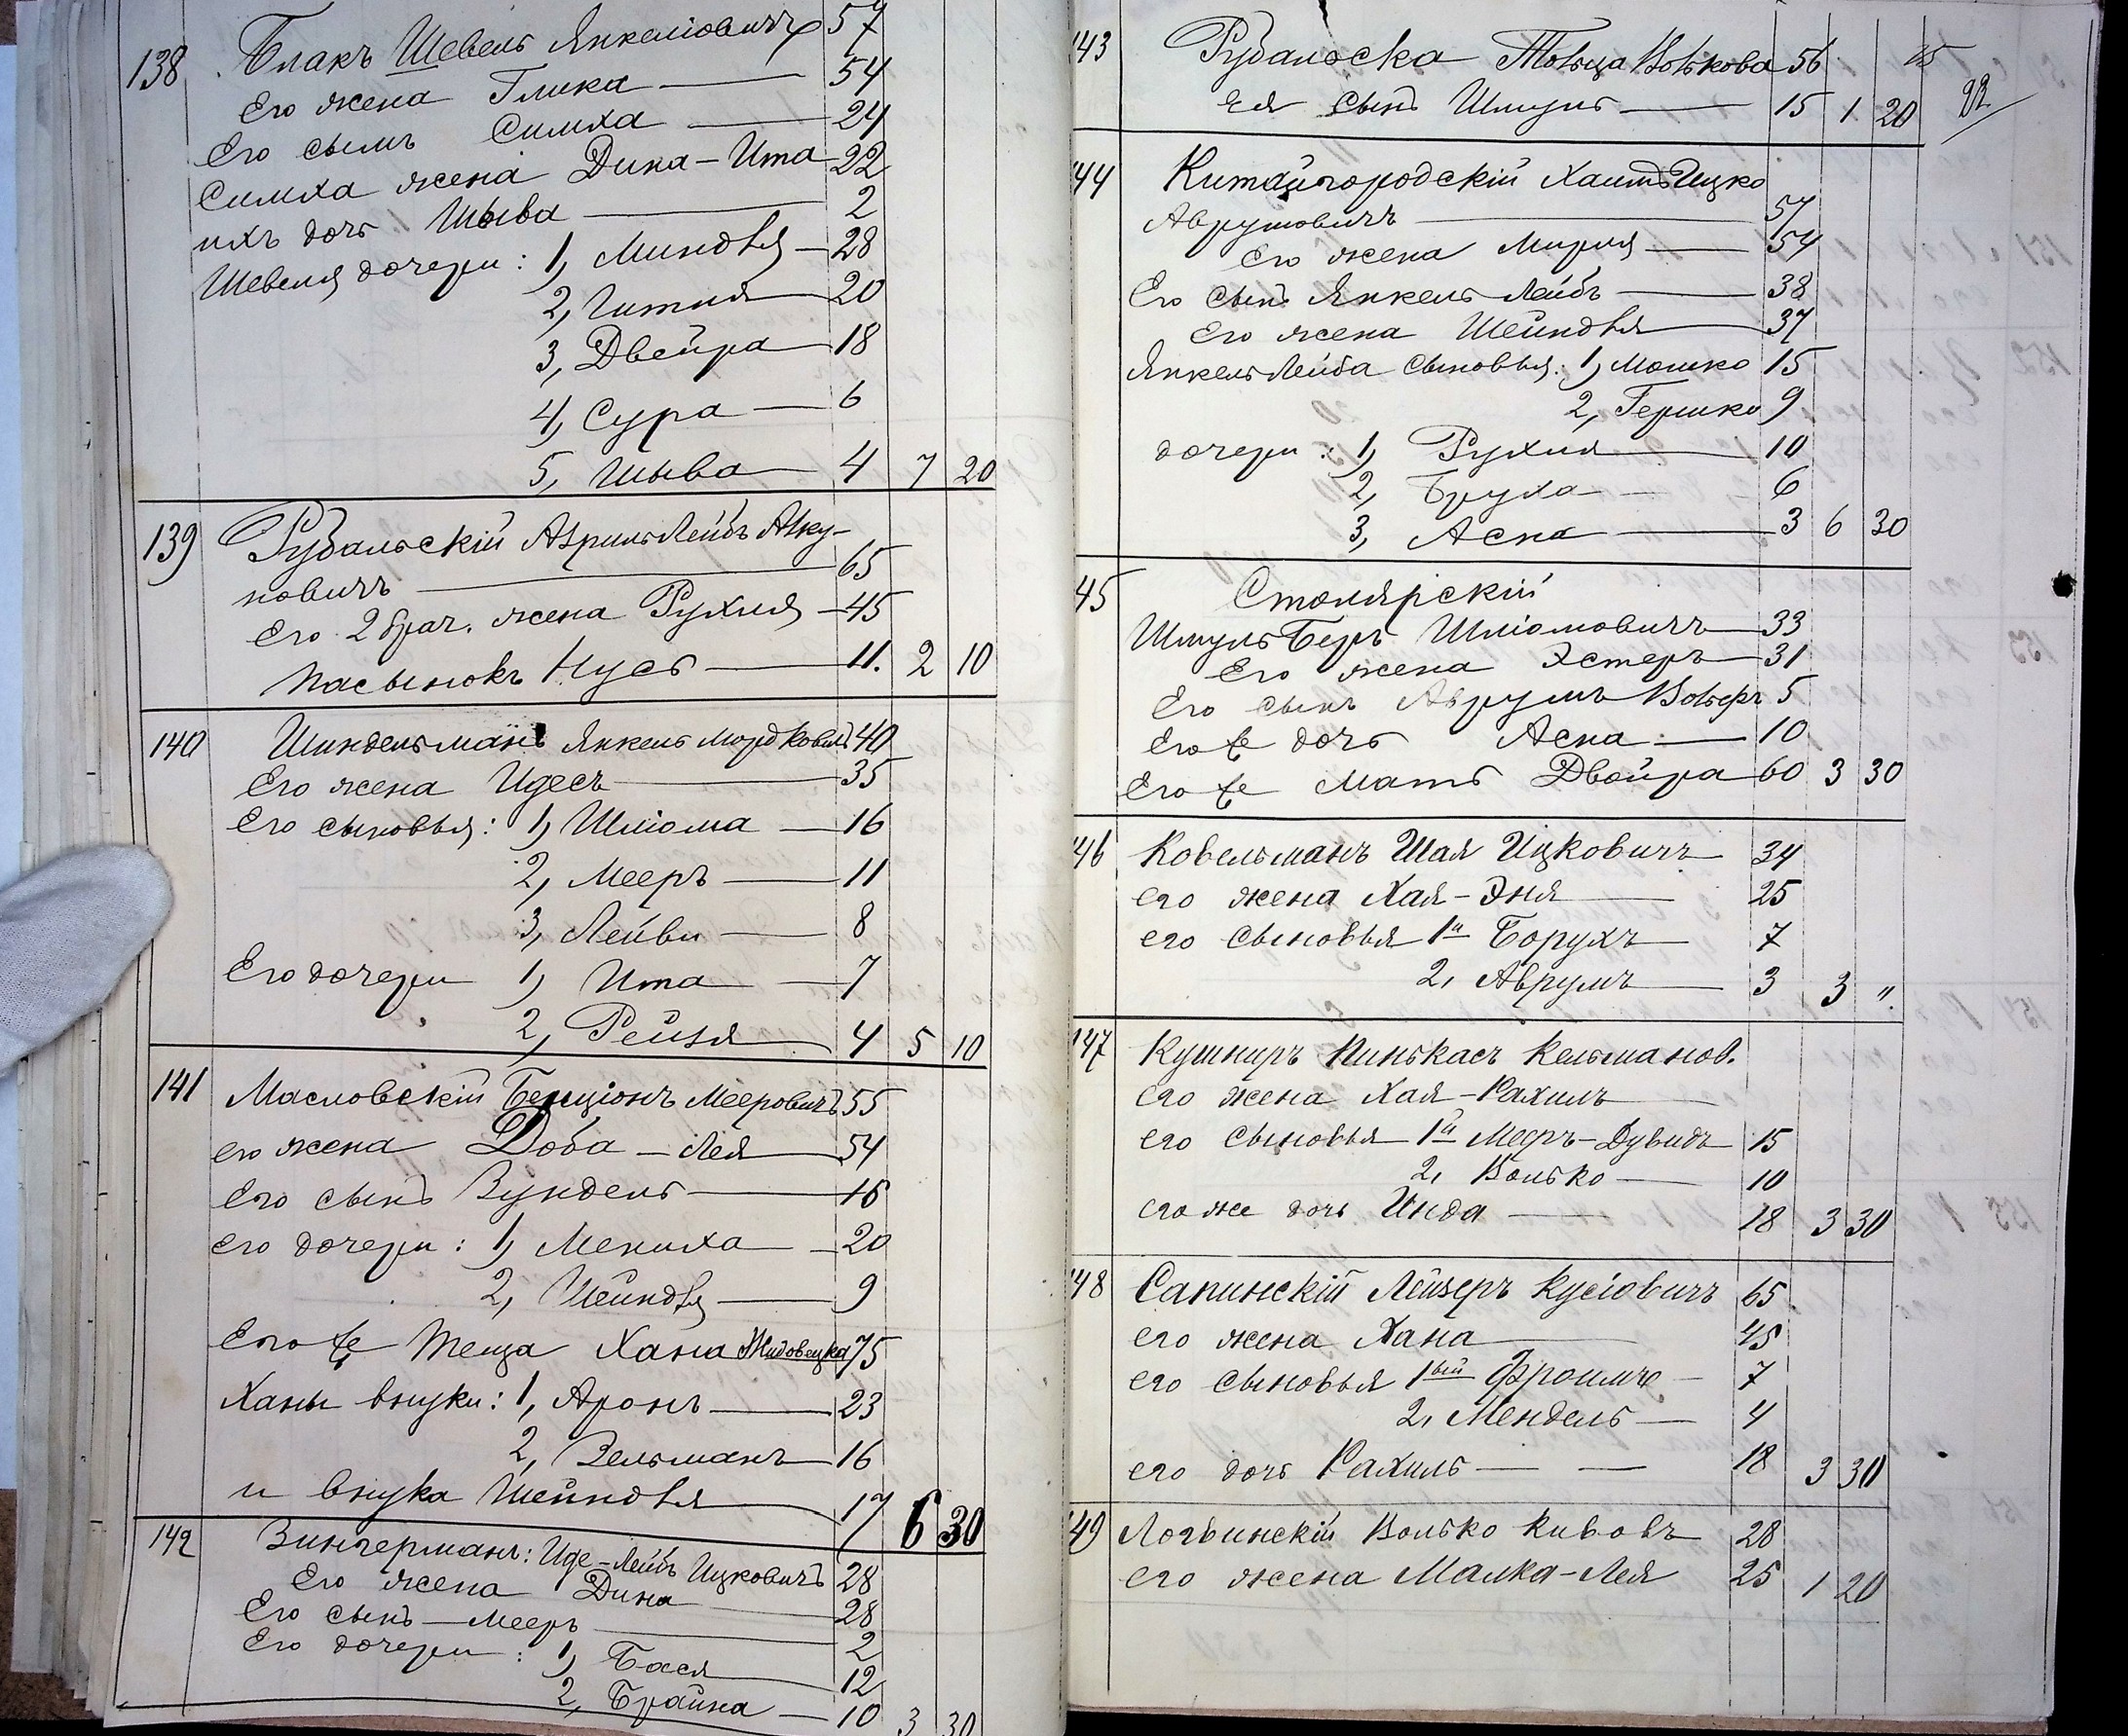 138 Блакъ Шевель Янкеліовичъ 57
Его жена Глика — 54
Его сынъ Симха — 24
Симха жена Дина-Ита 22
ихъ дочь Шыва — 2
Шевеля дочери: 1, Миндѣя — 28
2, Гитля — 20
3, Двейра — 18
4, Сура — 6
5, Шыва — 4 7 20
139 Рудальскій Азриль Лейбъ Янку-
новичъ — 65
Его 2 брач. жена Рухля — 45
Пасынокъ Нусь — 11. 2 10
140 Шиндельманъ Янкель Мордковичъ 40
Его жена Идесъ — 35
Его сыновья: 1, Шліома — 16
2, Мееръ — 11
3, Лейви — 8
Его дочери 1, Ита — 7
2, Рейзя — 4 5 10
141 Масловскій Бенціонъ Мееровичъ 55
его жена Доба-Лея — 54
Его сынъ Зундель — 16
его дочери: 1, Мениха — 20
2, Шейндѣя — 9
Его же теща Хана Жидовецка 75
Ханы внуки: 1, Аронъ — 23
2, Зельманъ — 16
и внука Шейндѣя — 17 6 30
142 Зингерманъ: Иде-Лейбъ Ицковичъ 28
Его жена Дина — 28
Его сынъ — Мееръ — 2
Его дочери: 1, Бася — 12
2, Брайна — 10 3 30
143 Рудальска Товца Волькова 56
Ея сынъ Шмуль — 15 1 20
144 Китайгородскій Хаимъ Ицко
Аврумовичъ — 57
Его жена Мирля — 54
Его сынъ Янкель Лейбъ — 38
Его жена Шейндѣя — 37
Янкель Лейба сыновья: 1, Мошко 15
2, Гершко 9
дочери: 1, Рухля — 10
2, Бруха — 6
3, Асна — 3 6 30
45 Столярскій
Шмуль Беръ Шліомовичъ — 33
Его жена Эстеръ — 31
Его сынъ Аврумъ Вольфъ 5
Его же дочь Асна — 10
Его же мать Двойра 60 3 30
46 Ковельманъ Шая Ицковичъ 34
его жена Хая-Эня — 25
его сыновья 1й Борухъ — 7
2, Аврумъ — 3 3 ".
147 Кушниръ Пинькасъ Кельманов.
его жена Хая-Рахиль —
его сыновья 1й Мееръ-Дувидъ 15
2, Волько — 10
его же дочь Инда — 18 3 30
48 Сапинскій Лейзеръ Кусіовичъ 65
его жена Хана — 45
его сыновья 1ый Фроимъ — 7
2, Мендель — 4
его дочь Рахиль — 18 3 30
49 Логвинскій Волько Кивовъ 28
его жена Малка-Лея 25 1 20